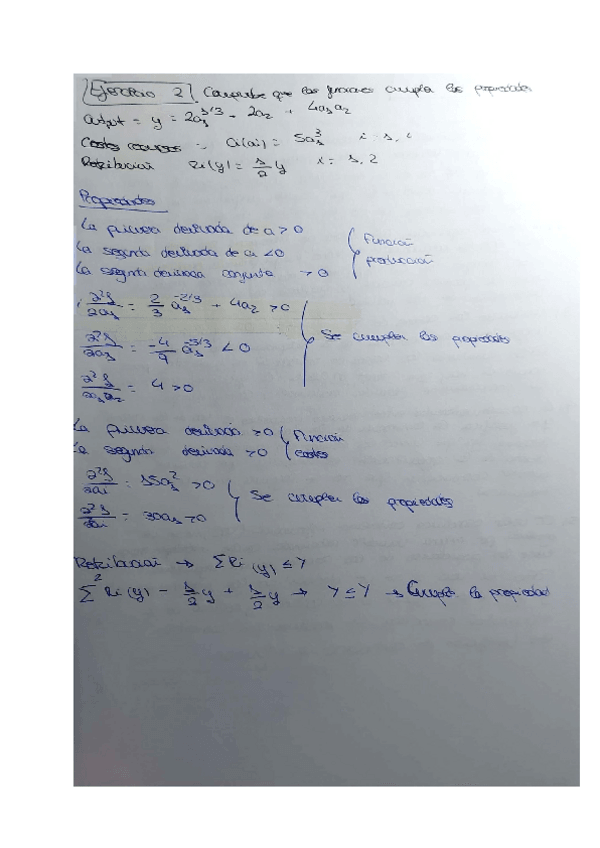 Ejercicio 2. Compruebe que las funciones cumplen las propiedades
Output = y = 2a₁^1/3 - 2a₂ + 4a₁a₂
Costes Ci(ai) = 5a₁³ i = 1,
Retribución Ri(y) = 1/2 y i = 1, 2
Propiedades
La primera derivada de a > 0
La segunda derivada de a < 0
La segunda derivada conjunta > 0
Función producción
∂²f/∂a₁ = 2/3 a₁^-2/3 + 4a₂ > 0
∂²f/∂a₁ = -4/9 a₁^-5/3 < 0
∂²f/∂a₁a₂ = 4 > 0
Se cumplen las propiedades
La primera derivada > 0
La segunda derivada > 0
Función costes
∂²f/∂ai = 15a₁² > 0
∂²f/∂ai = 30a₁ > 0
Se cumplen las propiedades
Retribución → ΣRi(y) ≤ Y
Σ² Ri(y) - 1/2 y + 1/2 y → Y ≤ Y → Cumple la propiedad